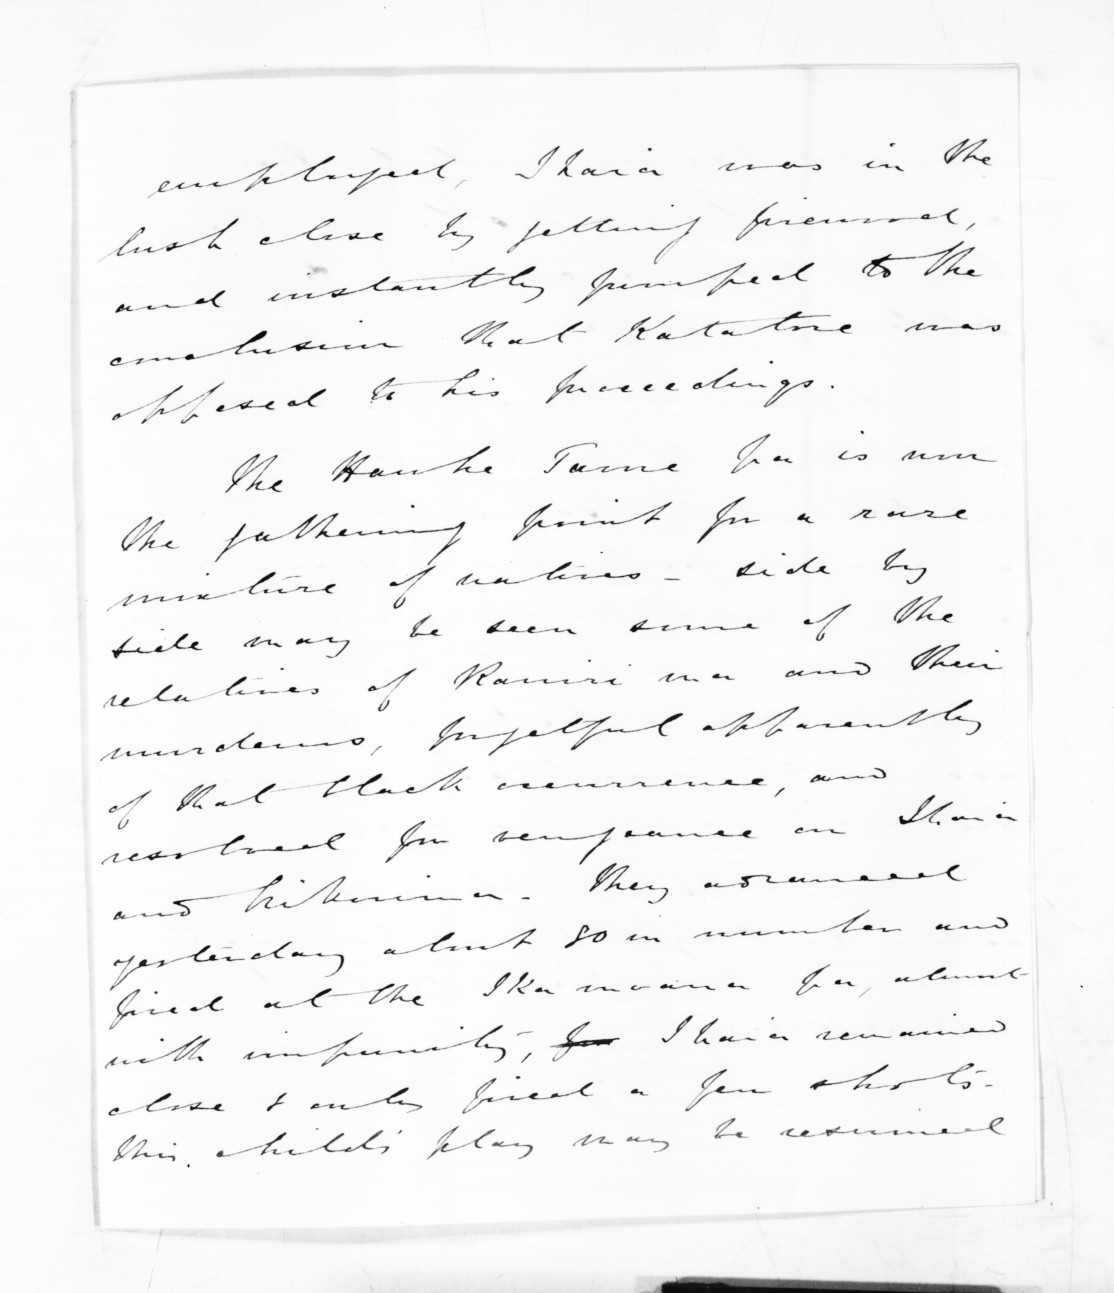 employed, Ihaia was in the
bush close by getting firewood,
and instantly jumped to the
conclusion that Katatore was
opposed to his proceedings.
The Hawke Tame pa is now
the gathering point for a rare
mixture of natives - side by
side may be seen some of the
relatives of Rawiri ma and their
murderers, forgetful apparently
of that black occurrence, and
resolved for vengeance on Ihaia
and Nikorima. They advanced
yesterday about 80 in number and
fired at the Ika moana pa, almost
with impunity, for Ihaia remained
close & only fired a few shots -
this child's play may be resumed